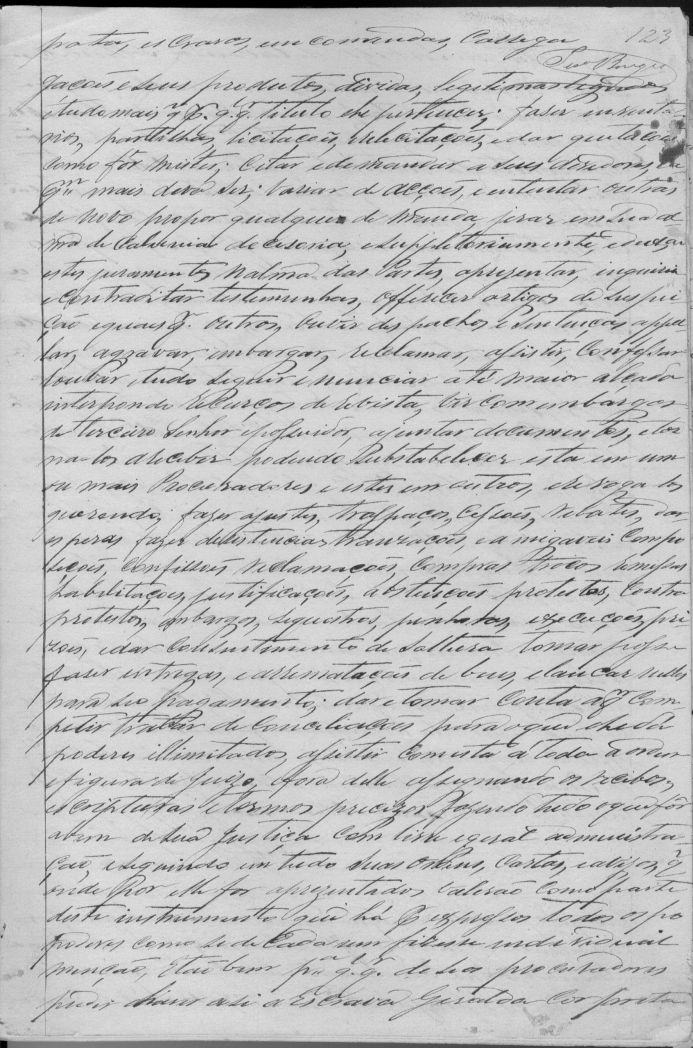 prata, escravos, encomendas, Carrega 123
Seo Borges
çaoes e seus productos, dividas, legitimas
e tudo mais q. p. q. q. titulo lhe pertencer; faser inventa
rios, partilhas, licitações, relicitações, e dar quitações
como for mister; Citar e demandar a seus devedores e a
q.m mais deva ser; variar de acções, e intentar outras
de novo propor qualquer demanda jurar em sua al
ma de Calunia decisoria, e suppletoriamente, e dar
estes juramentos n'alma das Partes, aprezentar, inquirir
e contraditar testemunhas, offerecer artigos de suspei
ção e quaes q. outros, ouvir despachos e Sentenças appel
lar, aggravar, embargar, reclamar, assistir, Confessar
louvar e tudo seguir e renunciar até maior alçada
interpondo Recurços de revista, vir com embargos
de terceiro Senhor e possuidor, ajuntar documentos, e tor
na-los a receber podendo Substabelecer esta em um
ou mais Procuradores e estes em outros, e revoga-los
querendo; fazer ajustes, traspaços, Cessoés, rebates, 
esperas fazer desistencias tranzações, e amigaveis Compo
siçoés, Confissoés reclamações, Compras trocos 
habilitações, justificações, abstenções protestos, contra
protestos, embargos, sequestros, penhoras, execuções, pri
zoés, e dar Consentimento de Soltura tomar posse
faser entregas, e arrematações de bens, e lançar nelles
para seo pagamento; dar e tomar Conta a q. com
petir tratar de Conciliações para o que lhe dá
poderes illimitados, assistir com esta a toda a ordem
e figura de Juizo, e fora delle assignando os recibos,
escripturas e termos precizos fazendo tudo o que for
a bem de sua Justiça com livre e geral administra
ção, e seguindo em tudo suas ordens, Cartas, e avizos, q.
onde por elle for aprezentados valerão como parte
deste instrumento que há p. expressos todos os po
poderes como se de Cada um fizesse individual
menção, Etão bem p.a q. q. q. de seos procuradores
 a Escrava Geralda Cor preta